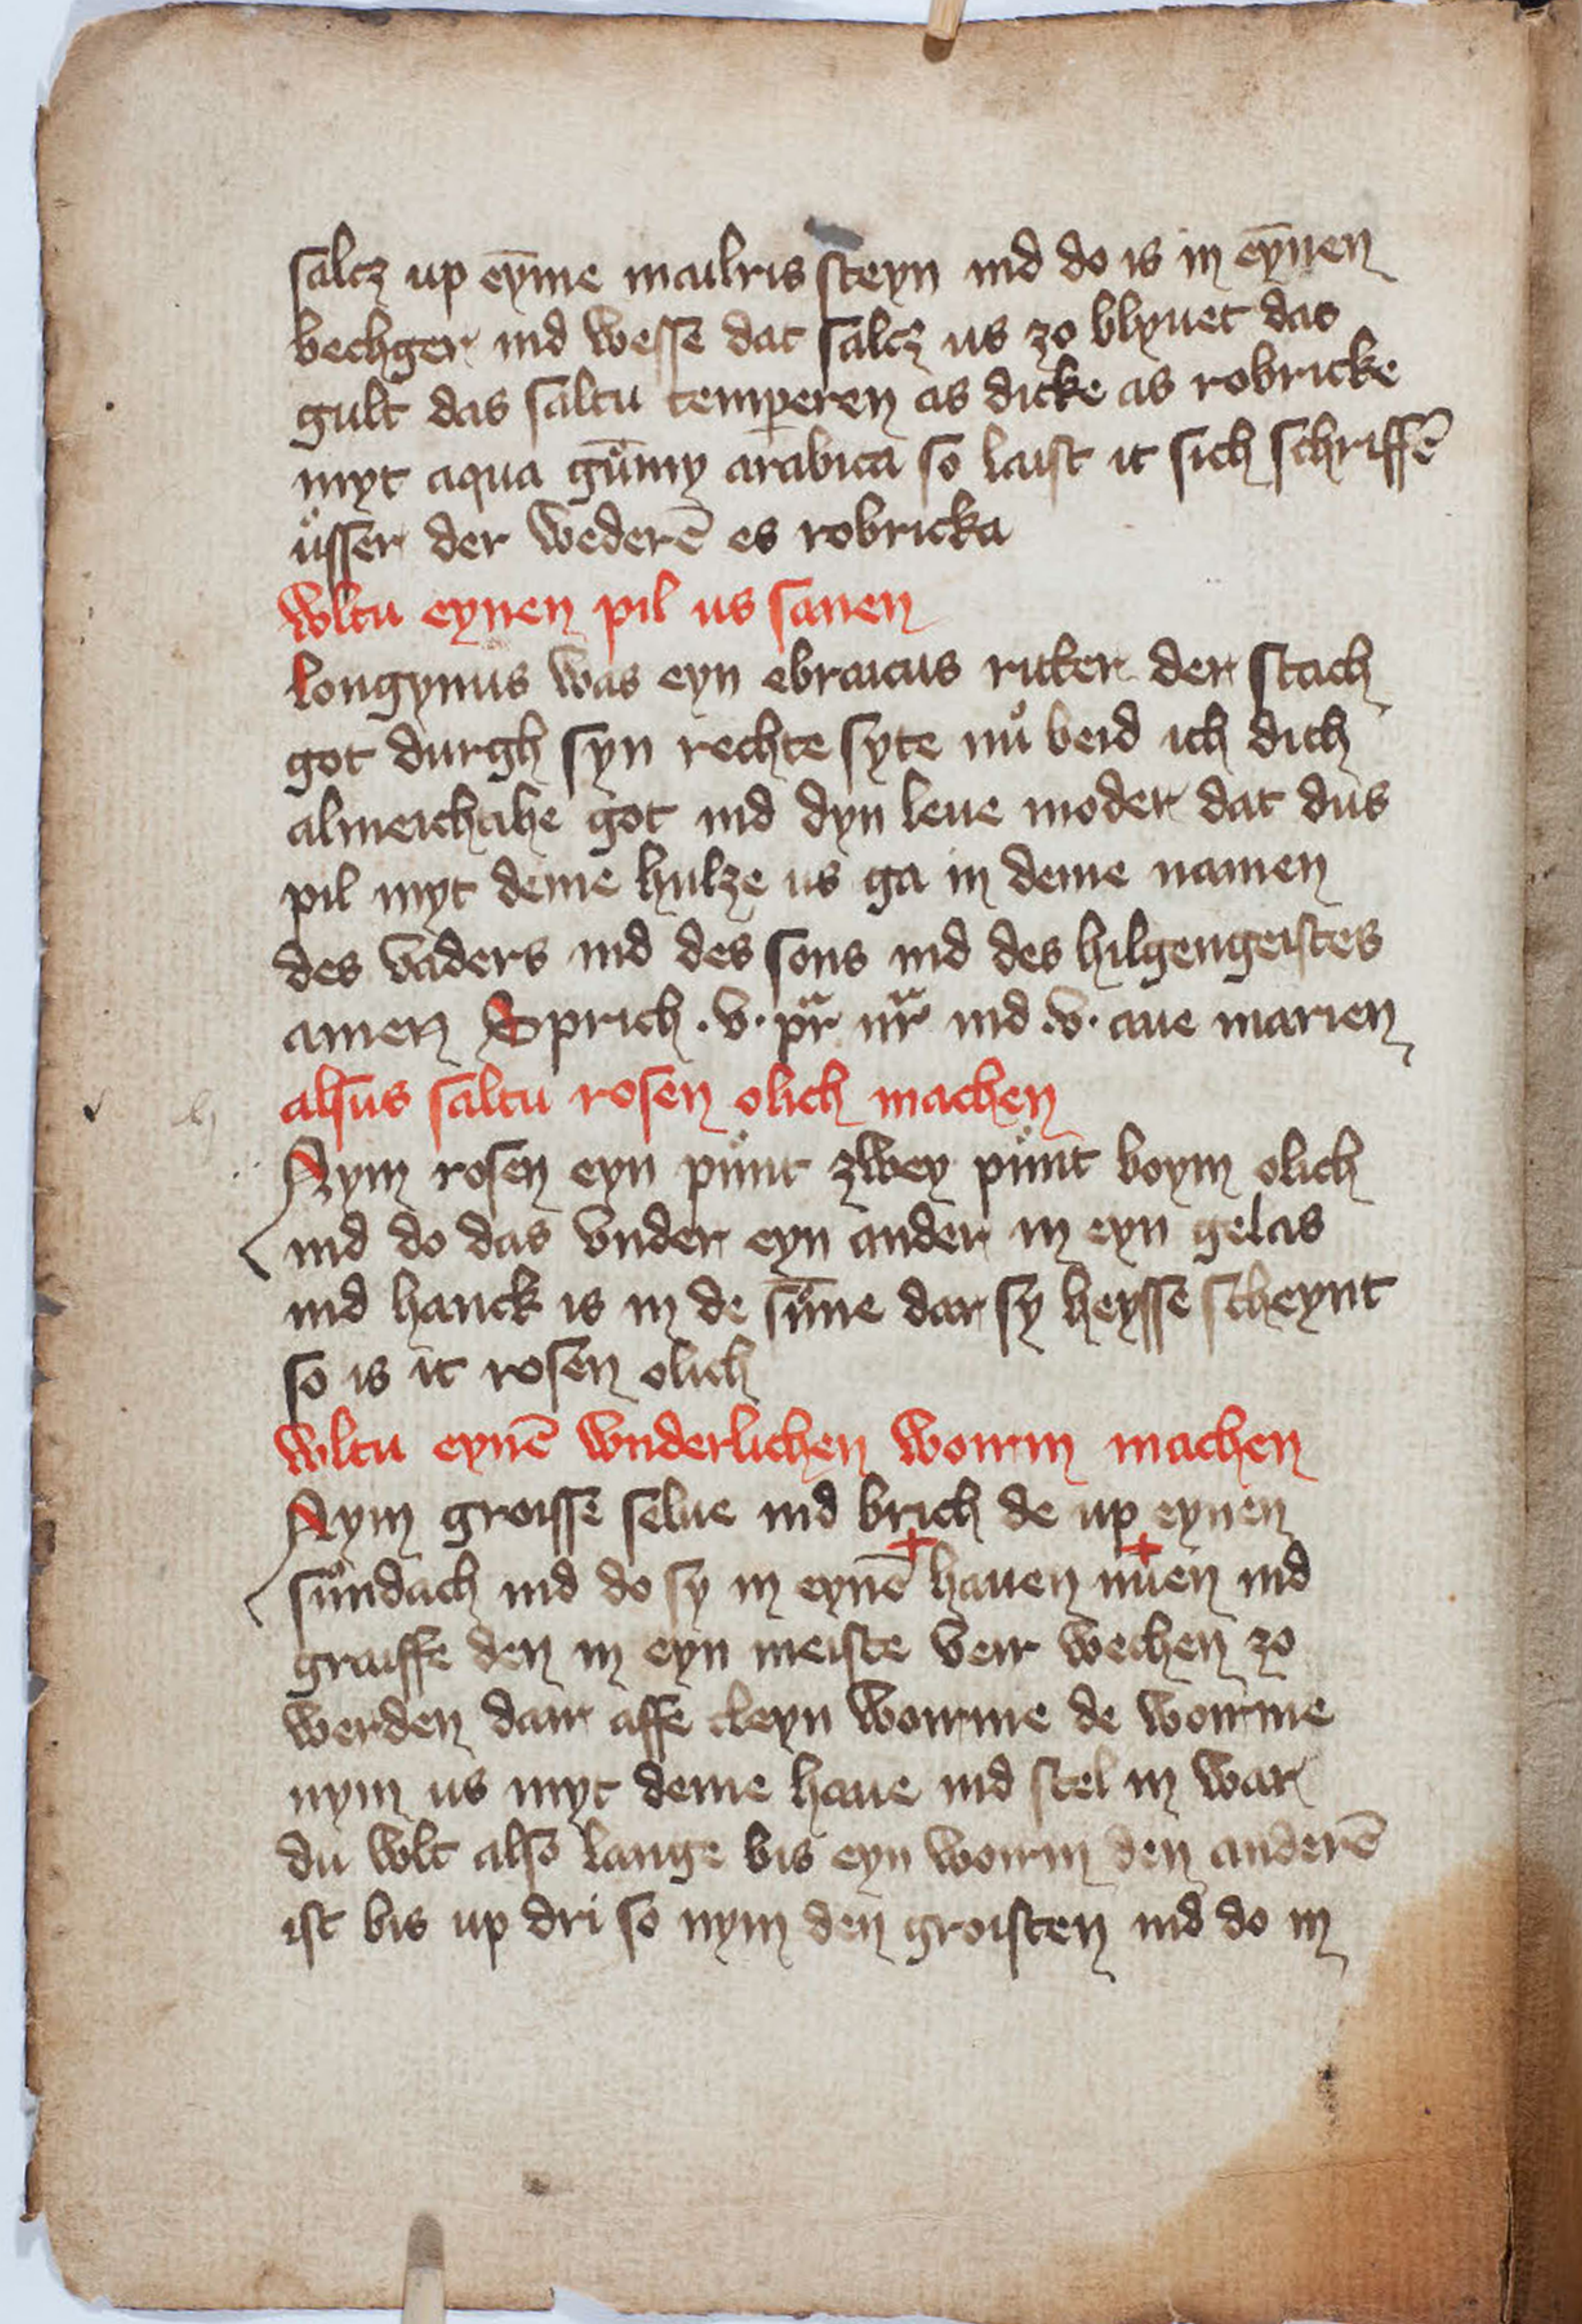 salcz up eȳme mailris steyn ind do is in eȳnen
bechger ind wesse dat salcz us zo blyuet das
gult das saltu temperen as dicke as robricke
myt aqua gum̄y arabica so laist it sich schriffē
ůsser der wederē es robricka
wltu eynen pil us sanen
longynus was eyn ebraicus ritter der stach
got durgh syn rechte syte nů beid ich dich
almeichtihe got ind dyn leue moder dat dus
pil myt deme hulze us ga in deme namen
des vaders ind des sons ind des hilgengeistes
amen Sprich .v. pr̄ nr̄ ind .v. aue marien
alsus saltu rosen olich machen
Nym rosen eyn půnt zwey půnt boym olich
ind do das vnder eyn ander in eyn gelas
ind hanck is in de sūne dar sy heysse scheynt
so is it rosen olich
wltu eynē wnderlichen worm machen
Nym groisse selue ind brich de up eynen
sůndach ind do sy in eynē hauen nuen ind
graiffe den in eyn meiste veir wechen zo
werden dair affe cleyn worme de worme
nym us myt deme haue ind stel in war
du wlt also lange bis eyn worm den anderē
ist bis up dri so nym den groisten ind do in